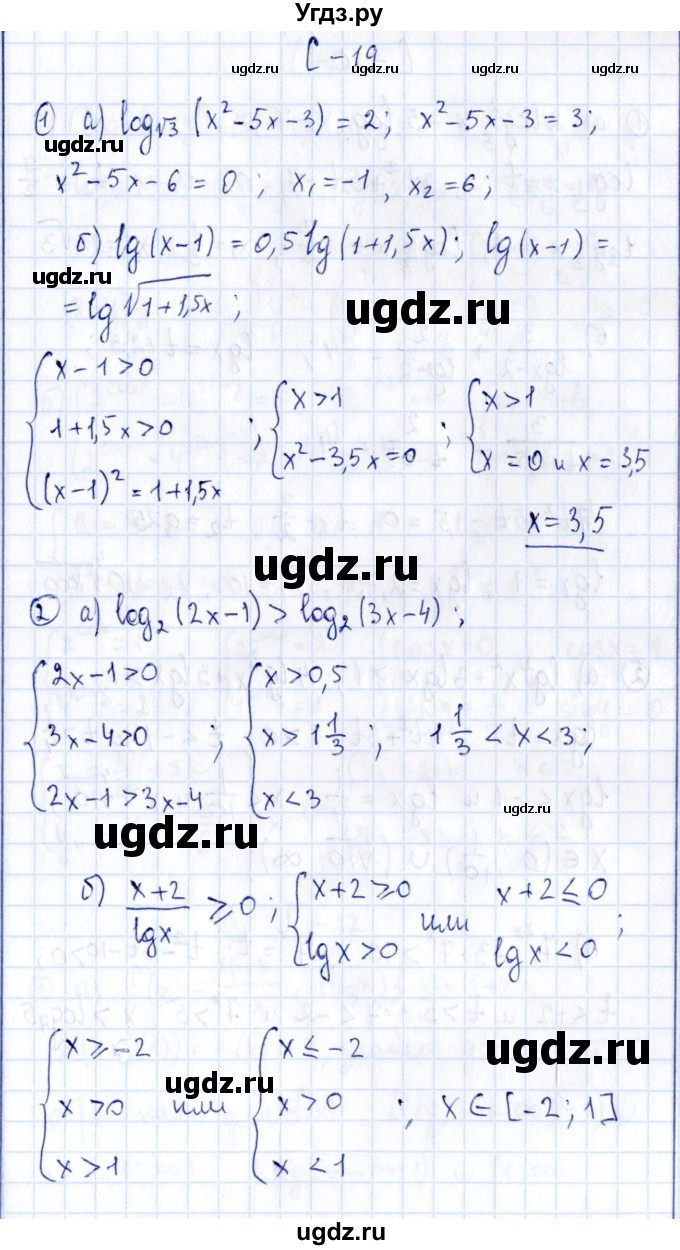 Угдз.ру
С-19
ugdz.ru ugdz.ru ugdz.ru
① а) log√3 (x²-5x-3) = 2; x²-5x-3 = 3;
ugdz.ru
x²-5x-6 = 0; x₁=-1, x₂=6;
б) lg(x-1) = 0,5lg(1+1,5x); lg(x-1) =
ugdz.ru
= lg√(1+1,5x);
ugdz.ru
{ x-1>0
1+1,5x>0
(x-1)²=1+1,5x ; { x>1
x²-3,5x=0 ; { x>1
x=0 и x=3,5
x=3,5
ugdz.ru
② а) log₂(2x-1)>log₂(3x-4);
{ 2x-1>0
3x-4>0
2x-1>3x-4 ; { x>0,5
x>1 1/3
x<3 ; 1 1/3<x<3;
ugdz.ru
ugdz.ru
б) (x+2)/lgx ⩾ 0; { x+2⩾0
lgx>0 или x+2≤0
lgx<0 ;
ugdz.ru
{ x⩾-2
x>0
x>1 или { x≤-2
x>0
x<1 ; x∈[-2;1]
ugdz.ru
ugdz.ru